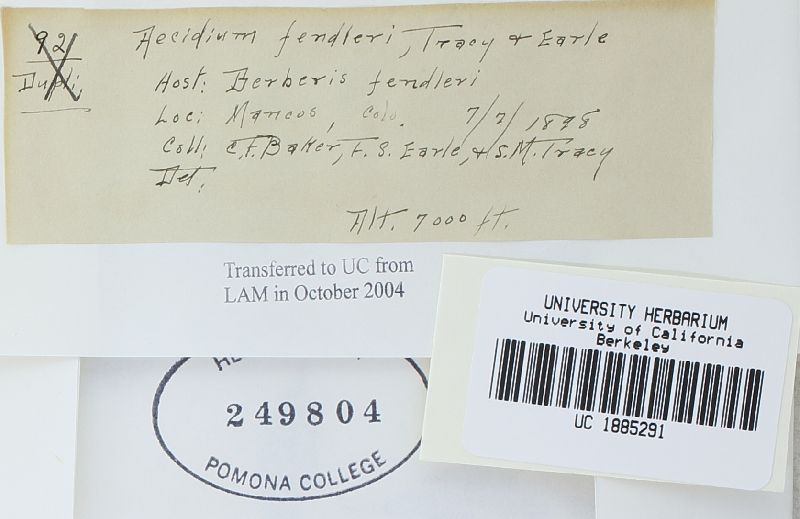 92
Dupli.
Aecidium fendleri, Tracy & Earle
Host: Berberis fendleri
Loc: Mancos, Colo. 7/7/1898
Coll: C.F. Baker, F. S. Earle, & S.M. Tracy
Det.
Alt. 7000 ft.
Transferred to UC from
LAM in October 2004
249804
POMONA COLLEGE
UNIVERSITY HERBARIUM
University of California
Berkeley
UC 1885291